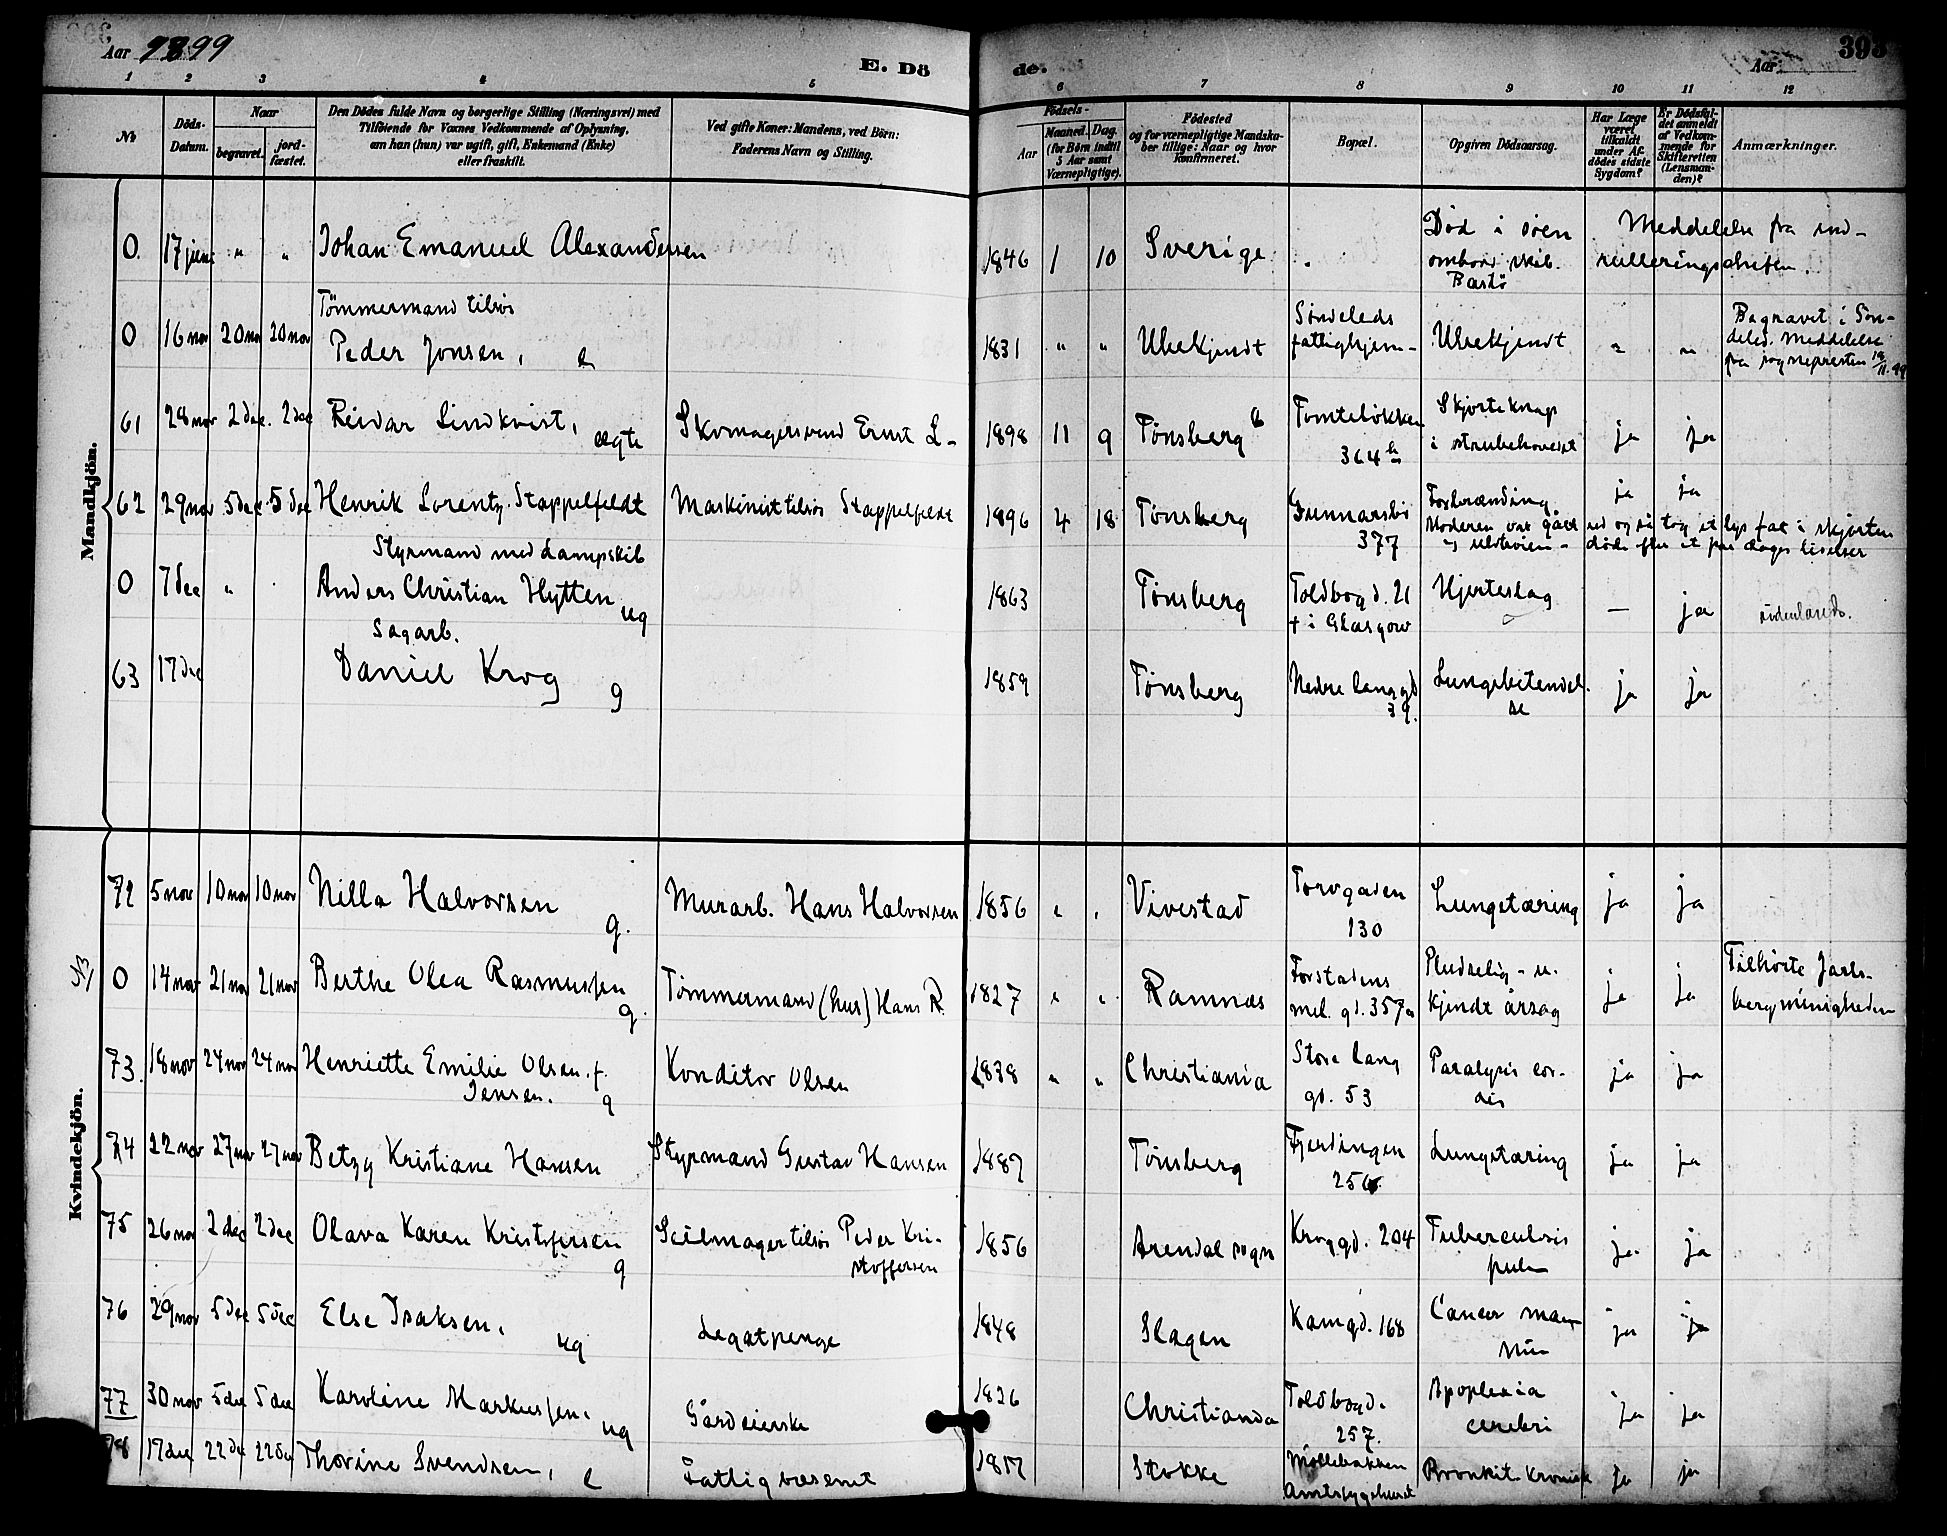 Aar 1899
E. Dö
de.
Aar
393
1 2 3 4 5 6 7 8 9 10 11 12
No
Döds-
Datum.
Naar
begravet.
jord-
fæstet.
Den Dödes fulde Navn og borgerlige Stilling (Næringsvei) med
Tilföiende for Voxnes Vedkommende af Oplysning,
om han (hun) var ugift, gift, Enkemand (Enke)
eller fraskilt.
Ved gifte Koner: Mandens, ved Börn:
Faderens Navn og Stilling.
Födsels-
Aar
Maaned. Dag.
(for Börn indtil
5 Aar samt
Værnepligtige).
Födested
og for værnepligtige Mandska-
ber tillige: Naar og hvor
konfirmeret.
Bopæl.
Opgiven Dödsaarsag.
Har Læge
været
tilkaldt
under Af-
dödes sidste
Sygdom?
Er Dödsfal-
det anmeldt
af Vedkom-
mende for
Skifteretten
(Lensman-
den)?
Anmærkninger.
Mandkjön.
0. 17 juni " " Johan Emanuel Alexandersen 1846 1 10 Sverige
Død i søen
ombord skib.
Bastø
Meddelelse fra ind-
rulleringschefen.
Tømmermand tilsøs
0 16 nov 20 nov 20 nov Peder Jonsen, e 1831 " " Ubekjendt
Søndeleds
fattighjem-
Ubekjendt " "
Begravet i Søn-
deled. Meddelelse
fra sognepresten 19/11.99
61 28 nov 2 dec. 2 dec Reidar Lindkvist, ægte Skomagersvend Ernst L- 1898 11 9 Tønsberg
Tomteløkken
364 b
Skjorteknap
i strubehovedet ja ja
62 29 nov 5 dec 5 dec Henrik Lorentz Stappelfeldt Maskinist tilsøs Stappelfeldt 1896 4 18 Tønsberg
Gunnarsbø
377
Forbrænding ja ja
Moderen var gået ned og så tog et lys fat i skjorten
døde efter et par dages lidelser
Styrmand med dampskib
0 7 dec " Anders Christian Hytten ug 1863 Tønsberg
Toldbogd. 21
† i Glasgow
Hjerteslag — ja
udenlands.
Sagarb.
63 17 dec Daniel Krog g 1859 Tønsberg
Nedre langgd
39.
Lungebetendel-
se ja ja
Kvindekjön.
72 5 nov 10 nov 10 nov Nilla Halvorsen g. Murarb. Hans Halvorsen 1856 Vivestad
Torvgaden
130
Lungetæring ja ja
0 14 nov 21 nov 21 nov Berthe Olea Rasmussen g. Tømmermand (hus) Hans R. 1827 Ramnæs
Forstadens
mel. gd. 357a
Pludselig - u-
kjendt årsag ja ja
Tilhørte Jarls-
bergmenigheden
73. 18 nov 24 nov 24 nov Henriette Emilie Olsen. f.
Jensen. g Konditor Olsen 1838 " " Christiania
Store lang
gd. 53
Paralysis cor-
dis ja ja
74 22 nov 27 nov 27 nov Betzy Kristiane Hansen Styrmand Gustav Hansen 1887 Tønsberg
Fjerdingen
256
Lungetæring ja ja
75 26 nov 2 dec 2 dec Olava Karen Kristofersen g Seilmager tilsøs Peder Kri-
stoffersen 1856 Arendal sogn
Kroggd. 204
Tuberculosis
pulm ja ja
76 29 nov 5 dec 5 dec Else Isaksen, ug Legatpenge 1848 Slagen
Kamgd. 168
Cancer mam-
ja ja
77 30 nov 5 dec 5 dec Karoline Markussen. ug Gårdeierske 1826 Christiania
Toldbogd.
257.
Apoplexia
cerebri ja ja
78 17 dec 22 dec 22 dec Thorine Svendsen, e Fattigvæsenet Stokke
Møllebakken
Amtssygehuset
Bronkit kronisk ja ja